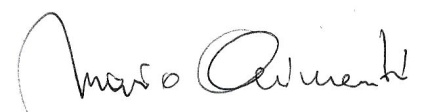 Mario Chimenti